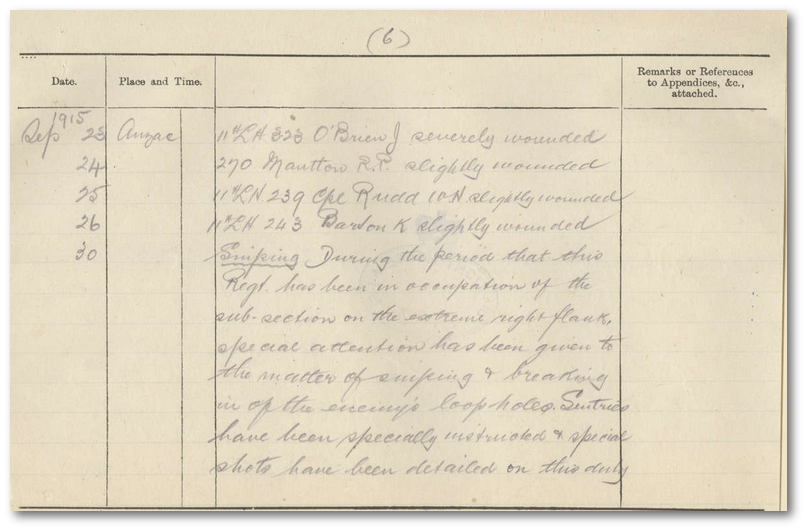 (6)
Date. Place and Time. Remarks or References to Appendices, &c., attached.
1915
Sep 23 Anzac 11th LH 323 O'Brien J severely wounded
24 270 R.P. slightly wounded
25 11th LH 239 Cpl Rudd W H slightly wounded
26 11th LH 243 Barton K slightly wounded
30 Sniping During the period that this
Regt. has been in occupation of the
sub-section on the extreme right flank,
special attention has been given to
the matter of sniping & breaking
in of the enemy's loop holes. Sentries
have been specially instructed & special
shots have been detailed on this duty